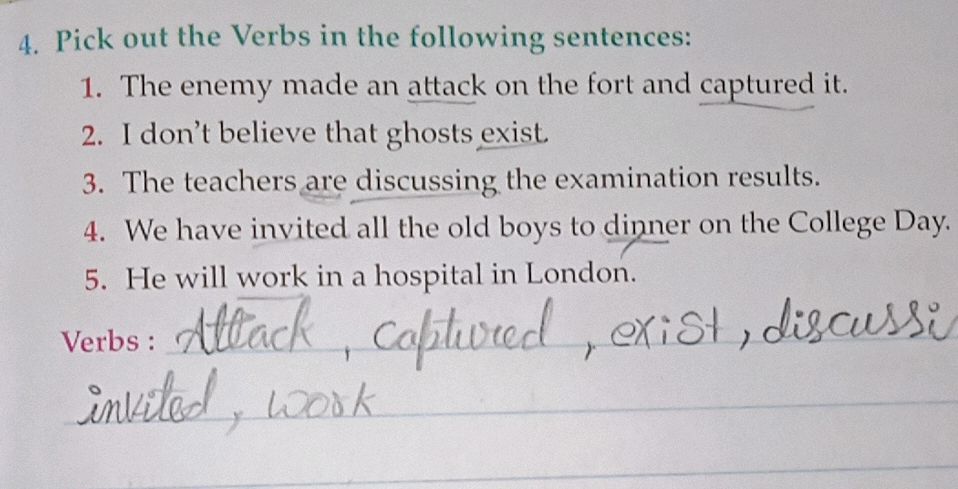 4. Pick out the Verbs in the following sentences:
1. The enemy made an attack on the fort and captured it.
2. I don't believe that ghosts exist.
3. The teachers are discussing the examination results.
4. We have invited all the old boys to dinner on the College Day.
5. He will work in a hospital in London.
Verbs : Attack, captured, exist, discussi
invited, work